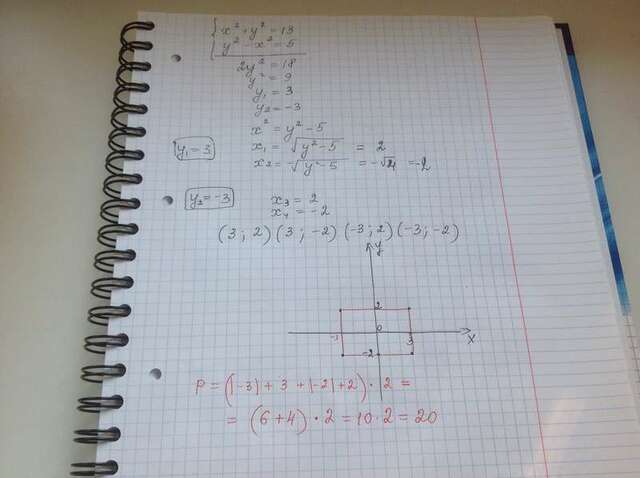 x² + y² = 13
y² - x² = 5
2y² = 18
y² = 9
y₁ = 3
y₂ = -3
x² = y² - 5
y₁ = 3 x₁ = √(y² - 5) = 2
x₂ = -√(y² - 5) = -√4 = -2
y₂ = -3 x₃ = 2
x₄ = -2
(3; 2) (3; -2) (-3; 2) (-3; -2)
y
2
0
-3 3 x
-2
P = (|-3| + 3 + |-2| + 2) · 2 =
= (6 + 4) · 2 = 10 · 2 = 20